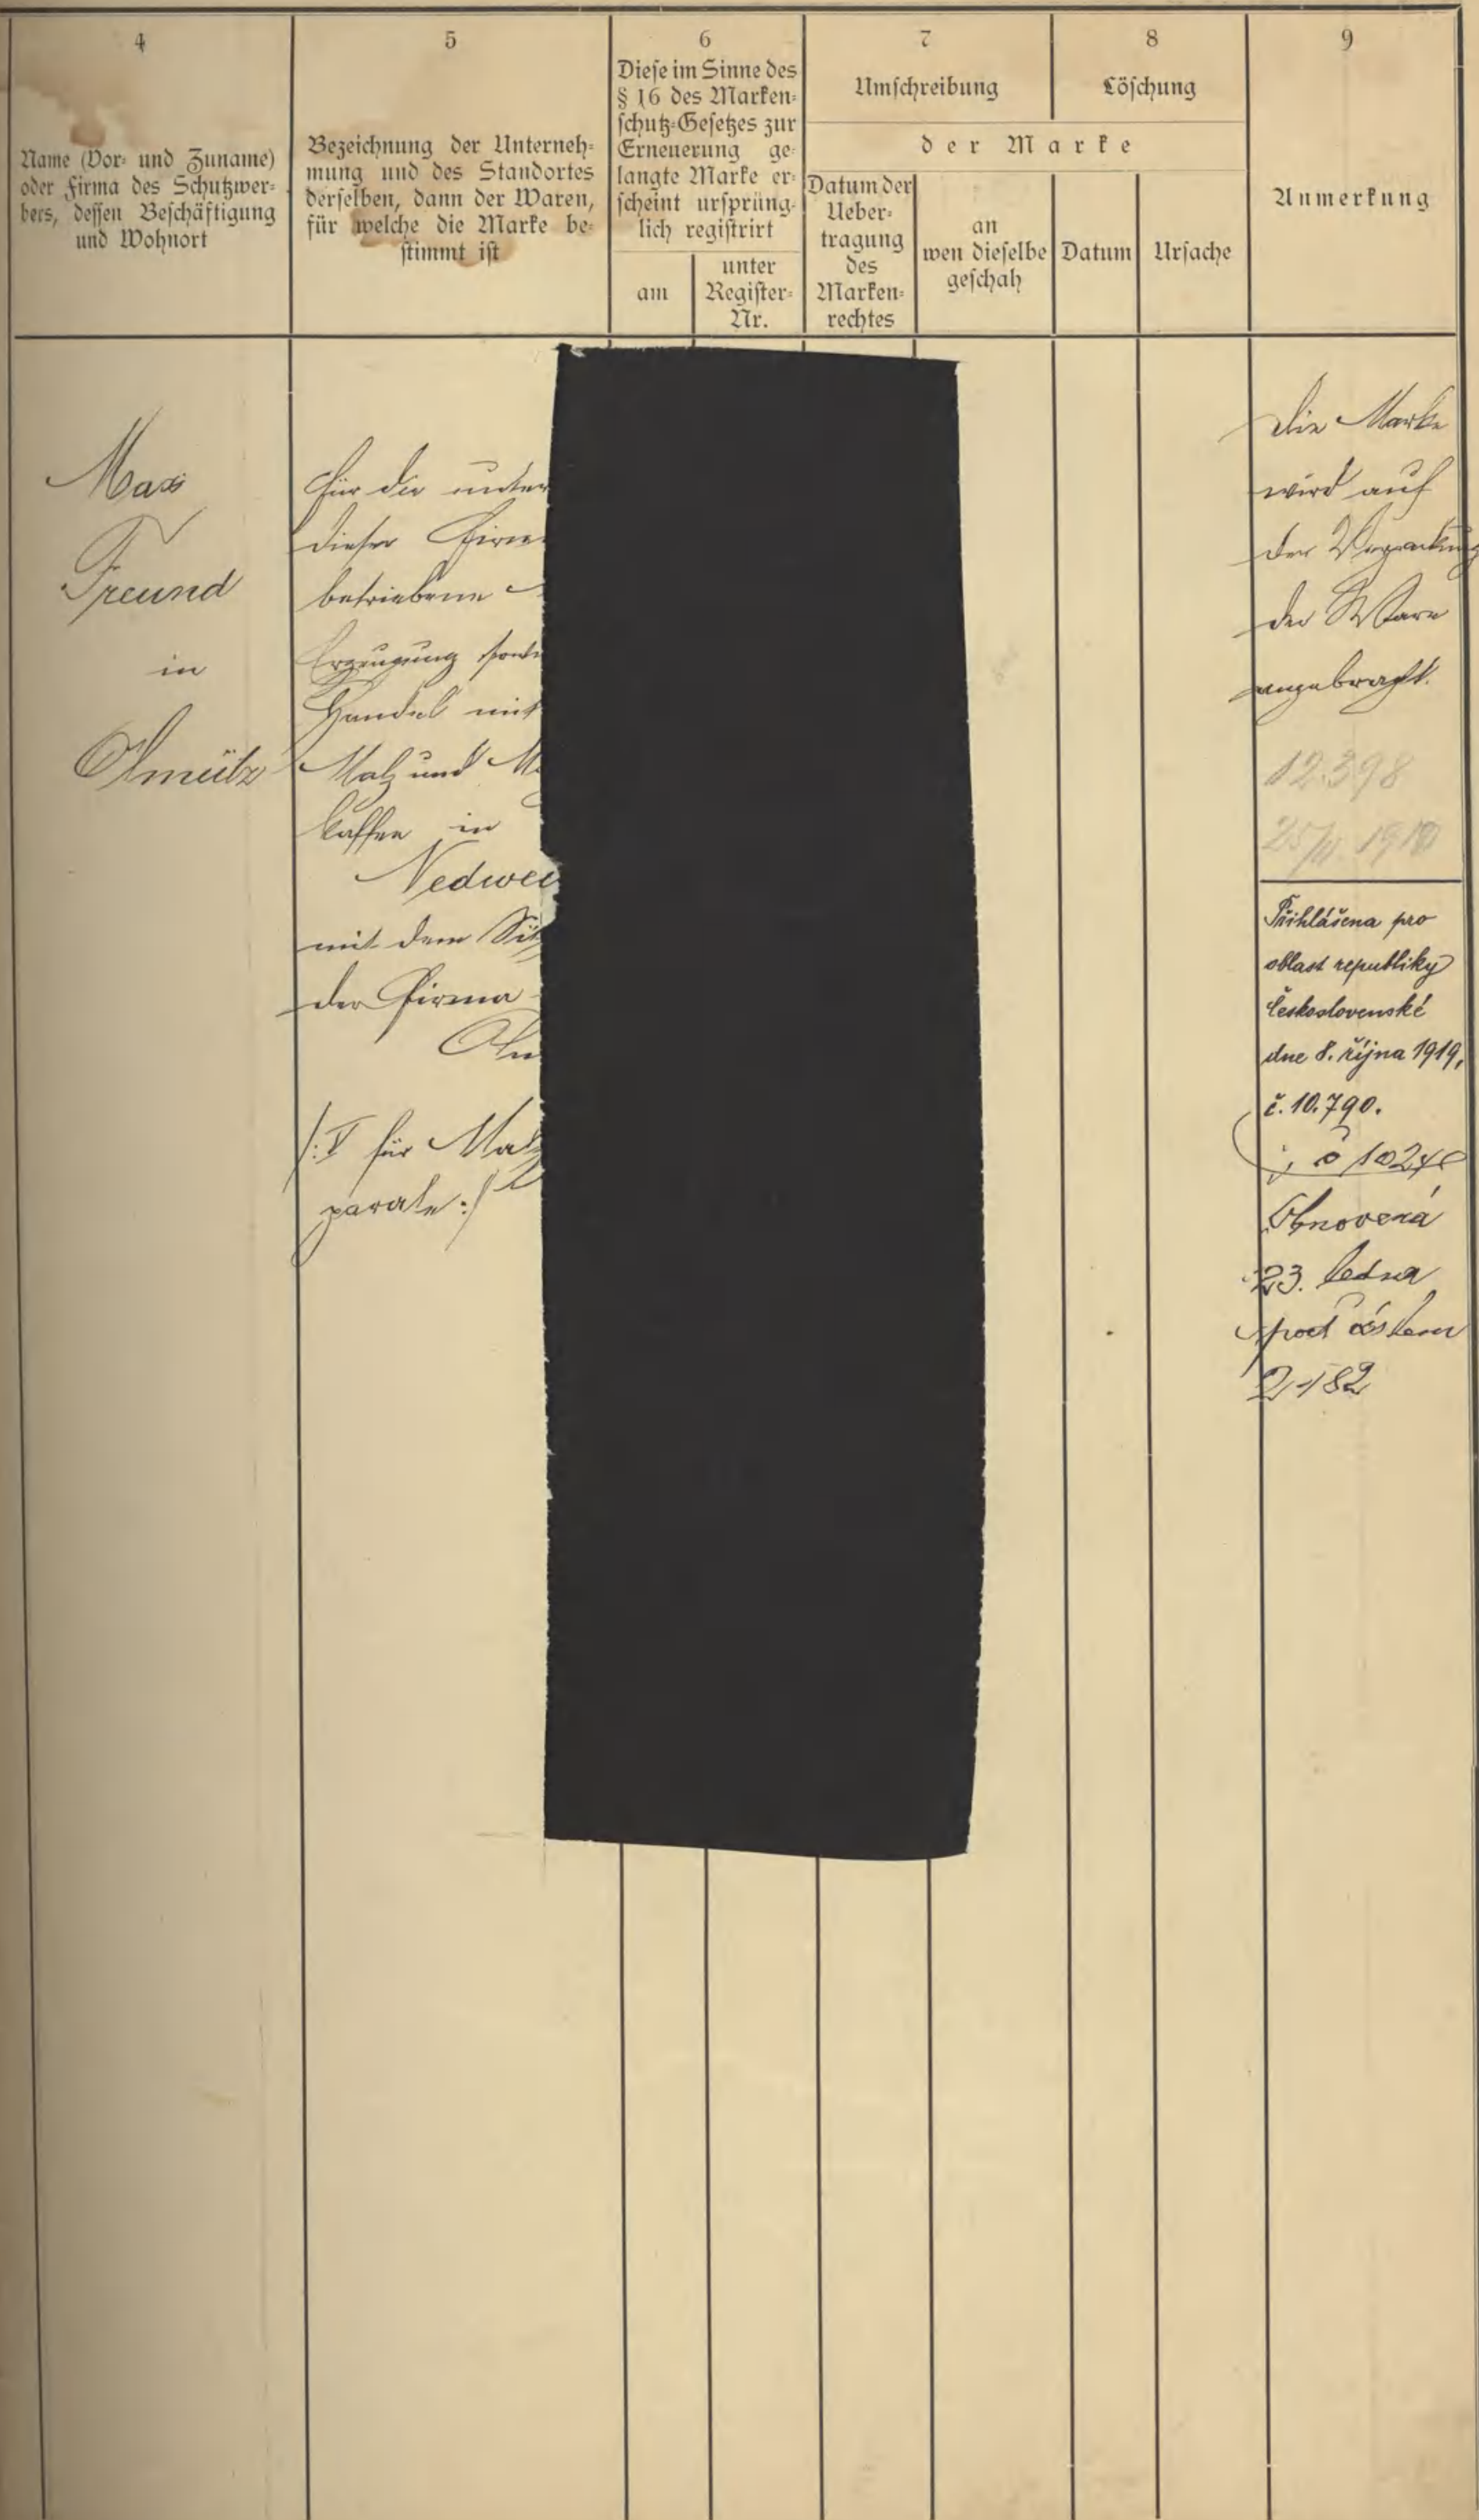 4
Name (Vor- und Zuname)
oder Firma des Schutzwer-
bers, dessen Beschäftigung
und Wohnort
5
Bezeichnung der Unterneh-
mung und des Standortes
derselben, dann der Waren,
für welche die Marke be-
stimmt ist
6
Diese im Sinne des
§ 16 des Marken-
schutz-Gesetzes zur
Erneuerung ge-
langte Marke er-
scheint ursprüng-
lich registrirt
am
unter
Register-
Nr.
7
Umschreibung
8
Löschung
der Marke
Datum der
Ueber-
tragung
des
Marken-
rechtes
an
wen dieselbe
geschah
Datum
Ursache
9
Anmerkung
Max
Freund
in
Olmütz
für die unter
dieser Firm
betriebene
Erzeugung sowie
Handel mit
Malz und M
kaffee in
Nedwei
mit dem Sit
der Firma
Olm
/: V für Malz
parate :/
Die Marke
wird auf
der Verpackung
der Ware
angebracht.
12.398
Přihlášena pro
oblast republiky
Československé
dne 8. října 1919,
č. 10.790.
Obnovená
23. ledna
pod číslem
2182